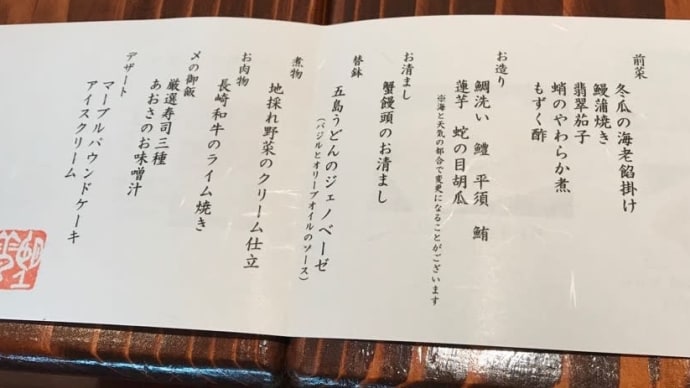 前菜
冬瓜の海老餡掛け
鰻蒲焼き
翡翠茄子
蛸のやわらか煮
もずく酢
お造り
鯛洗い 鱧 平須 鮪
蓮芋 蛇の目胡瓜
※海と天気の都合で変更になることがございます
お清まし
蟹饅頭のお清まし
替鉢
五島うどんのジェノベーゼ
（バジルとオリーブオイルのソース）
煮物
地採れ野菜のクリーム仕立
お肉物
長崎和牛のライム焼き
〆の御飯
厳選寿司三種
あおさのお味噌汁
デザート
マーブルパウンドケーキ
アイスクリーム